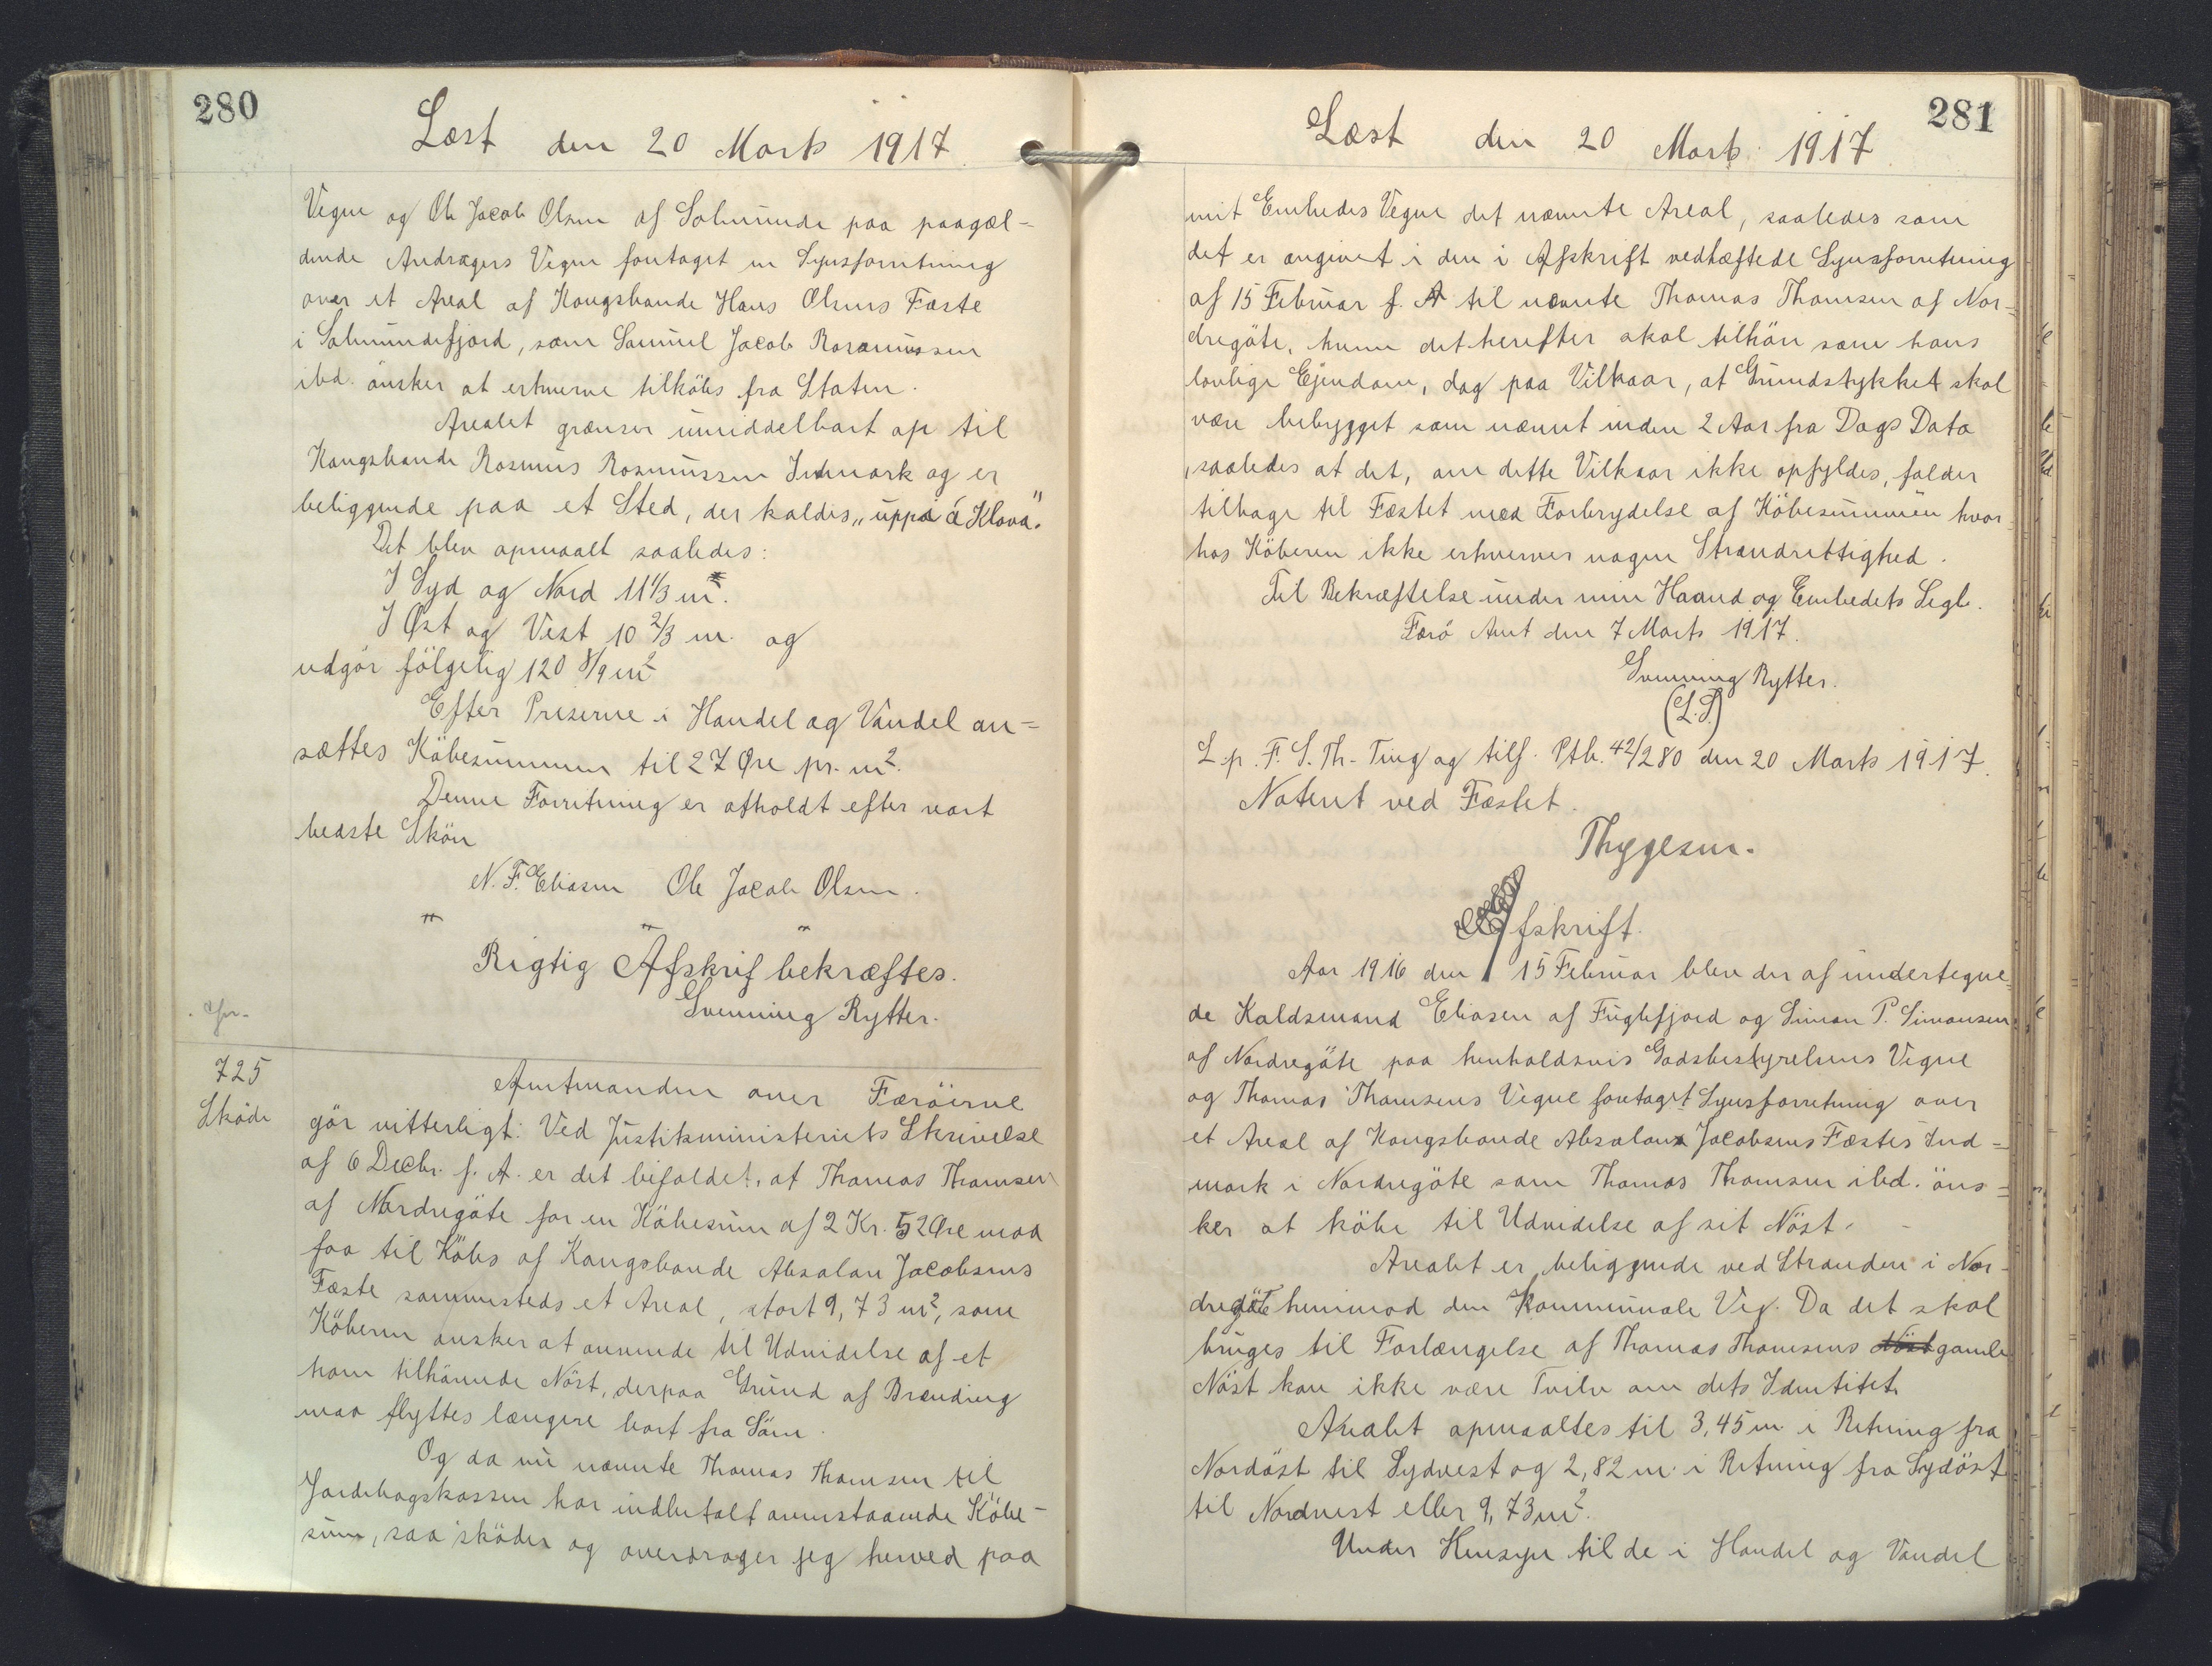 280
Læst den 20 Marts 1917.
Vegne og Ole Jacob Olsen af Solmunde paa paagæl-
dende Andragers Vegne foretaget en Synsforretning
over et Areal af Kongsbonde Hans Olsens Fæste
i Solmundefjord, som Samuel Jacob Rasmussen
ibd. ønsker at erhverve tilkøbs fra Staten.
Arealet grænser umiddelbart op til
Kongsbonde Rasmus Rasmussen Indmark og er
beliggende paa et Sted, der kaldes „uppá á Klova"
Det blev opmaalt saaledes:
I Syd og Nord 11 1/3 m.
I Øst og Vest 10 2/3 m. og
udgør følgelig 120 8/9 m²
Efter Priserne i Handel og Vandel an-
sættes Købesummen til 27 Øre pr. m².
Denne Forretning er afholdt efter vort
bedste Skøn
N. F. Eliasen Ole Jacob Olsen.
Rigtig Afskrif bekræftes.
Svenning Rytter.
725
Skøde
Amtmanden over Færøerne
gør vitterligt: Ved Justitsministeriets Skrivelse
af 6 Decbr. f. A. er det bifaldet, at Thomas Thomsen
af Nordregøte for en Købesum af 2 Kr. 52 Øre maa
faa til Købs af Kongsbonde Absalon Jacobsens
Fæste sammesteds et Areal, stort 9,73 m², som
Køberen ønsker at anvende til Udvidelse af et
ham tilhørende Nøst, der paa Grund af Brænding
maa flyttes længere bort fra Søen.
Og da nu nævnte Thomas Thomsen til
Jordebogskassen har indbetalt ovenstaaende Købe-
sum, saa skøder og overdrager jeg herved paa
281
Læst den 20 Marts 1917
mit Embedes Vegne det nævnte Areal, saaledes som
det er angivet i den i Afskrift vedhæftede Synsforretning
af 15 Februar f. A til nævnte Thomas Thomsen af Nor-
dregøte, hvem det herefter skal tilhøre som hans
lovlige Ejendom, dog paa Vilkaar, at Grundstykket skal
være bebygget som nævnt inden 2 Aar fra Dags Dato
, saaledes at det, om dette Vilkaar ikke opfyldes, falder
tilbage til Fæstet med Forbrydelse af Købesummen hvor-
hos Køberen ikke erhverver nogen Strandrettighed.
Til Bekræftelse under min Haand og Embedets Segl.
Færø Amt den 7 Marts 1917.
Svenning Rytter.
(L.S)
L. p. F. S. Th-Ting og tilf. Ptb. 42/280 den 20 Marts 1917.
Noteret ved Fæstet.
Thygesen.
Afskrift.
Aar 1916 den 15 Februar blev der af undertegne-
de Kaldsmand Eliasen af Fuglefjord og Simon P. Simonsen
af Nordregøte paa henholdsvis Godsbestyrelsens Vegne
og Thomas Thomsens Vegne foretaget Synsforretning over
et Areal af Kongsbonde Absalons Jacobsens Fæstes Ind-
mark i Nordregøte som Thomas Thomsen ibd. øns-
ker at købe til Udvidelse af sit Nøst.
Arealet er beliggende ved Stranden i Nor-
dregøte henimod den Kommunale Vej. Da det skal
bruges til Forlængelse af Thomas Thomsens Nøst gamle
Nøst kan ikke være Tvilv om dets Identitet.
Arealet opmaaltes til 3,45 m i Retning fra
Nordøst til Sydvest og 2,82 m. i Retning fra Sydøst
til Nordvest eller 9,73 m².
Under Hensyn til de i Handel og Vandel